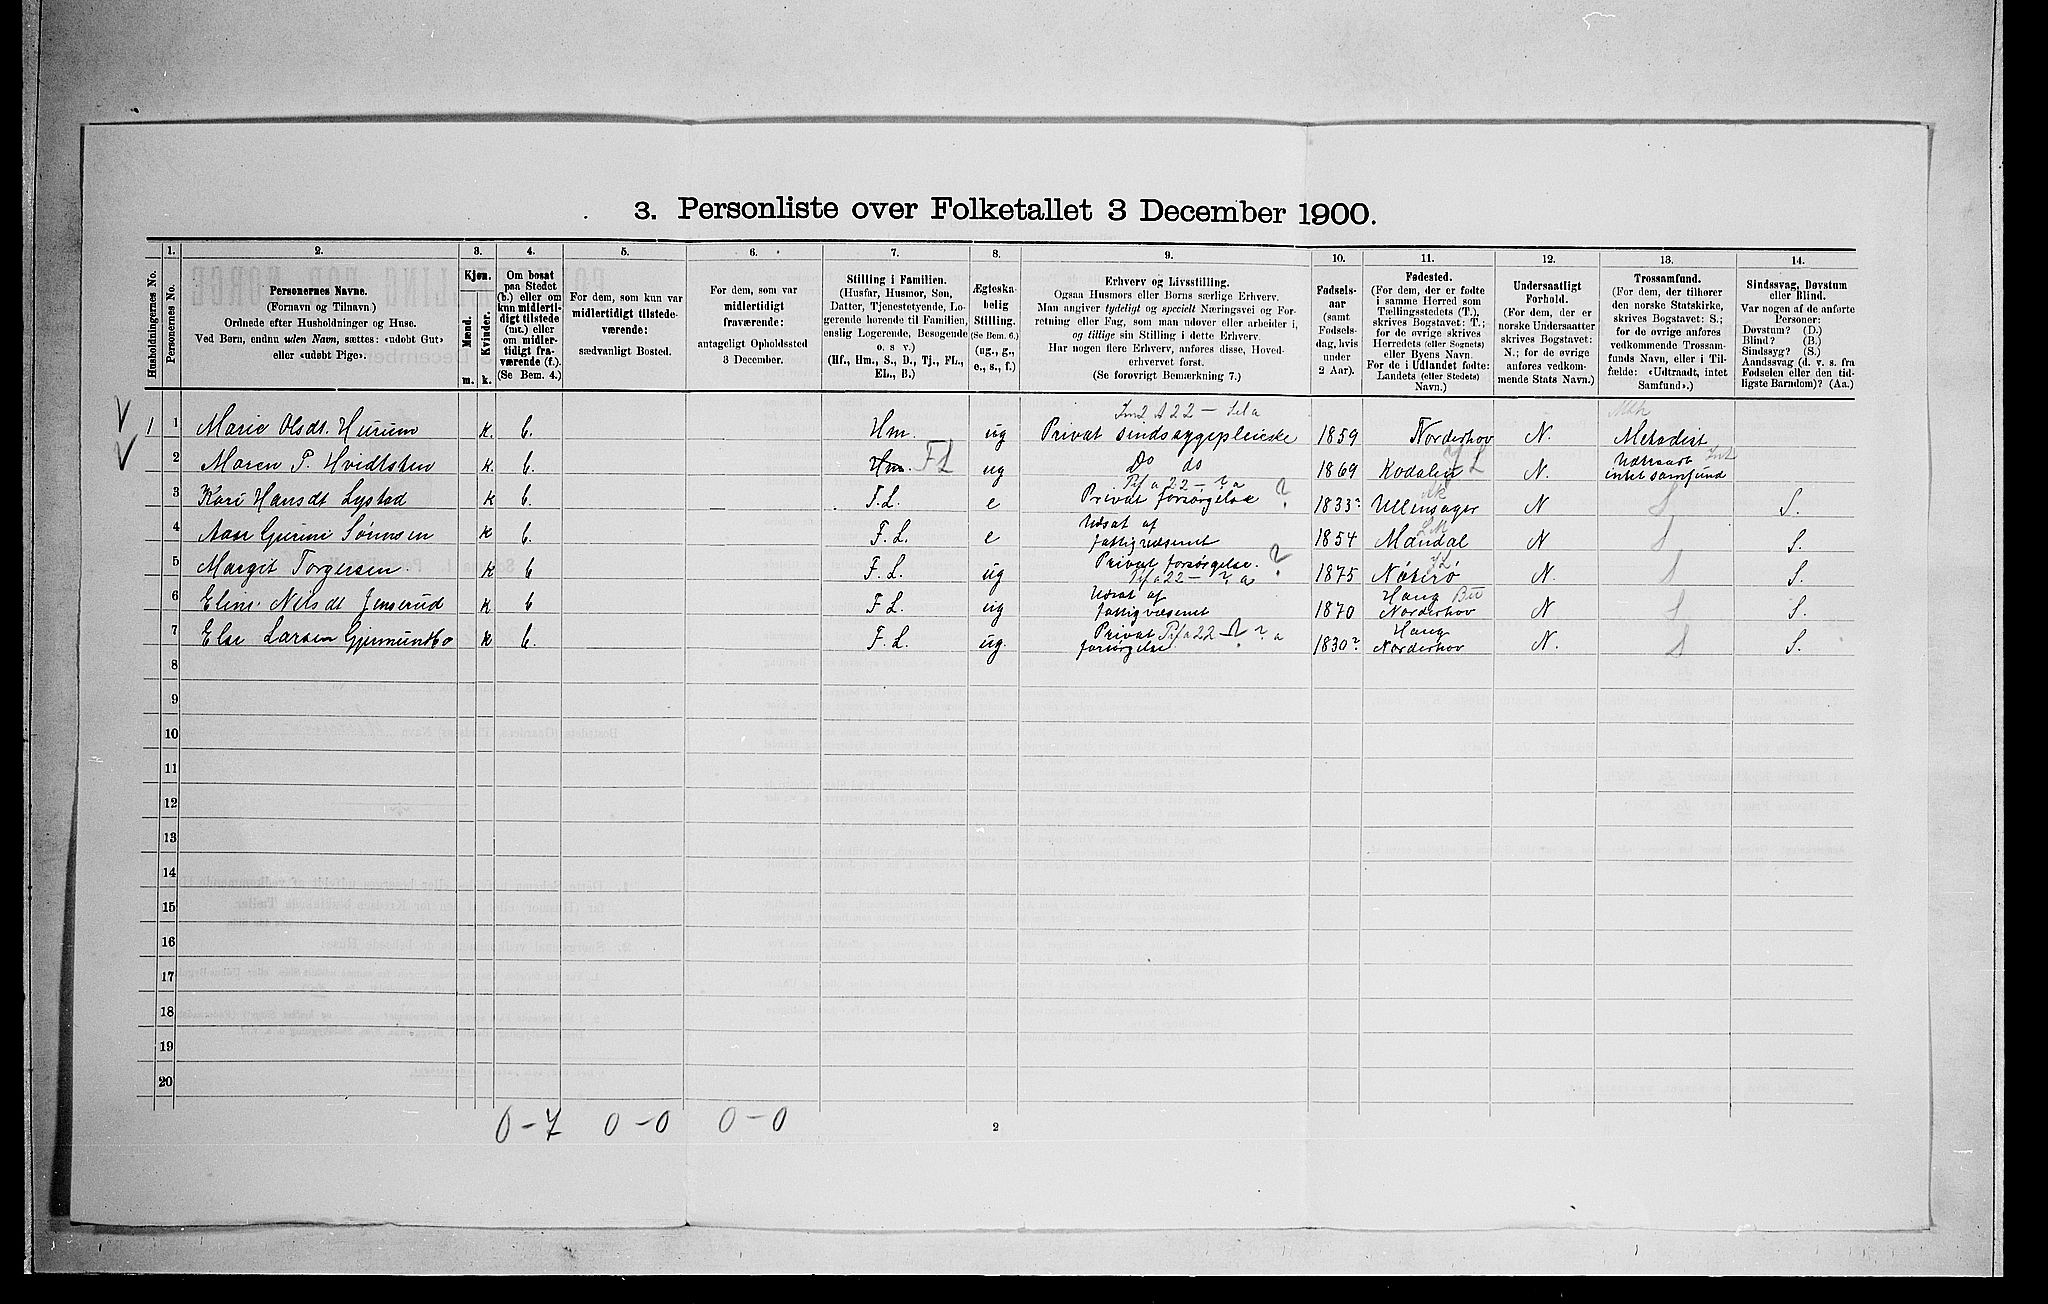 3. Personliste over Folketallet 3 December 1900.
1. 2. 3. 4. 5. 6. 7. 8. 9. 10. 11. 12. 13. 14.
Husholdningernes No.
Personernes No.
Personernes Navne.
(Fornavn og Tilnavn)
Ordnede efter Husholdninger og Huse.
Ved Børn, endnu uden Navn, sættes: «udøbt Gut»
eller «udøbt Pige».
Kjøn.
Mænd. Kvinder.
m. k.
Om bosat
paa Stedet
(b.) eller om
kun midlerti-
digt tilstede
(mt.) eller
om midler-
tidigt fra-
værende (f.).
(Se Bem. 4.)
For dem, som kun var
midlertidigt tilstede-
værende:
sædvanligt Bosted.
For dem, som var
midlertidigt
fraværende:
antageligt Opholdssted
3 December.
Stilling i Familien.
(Husfar, Husmor, Søn,
Datter, Tjenestetyende, Lo-
gerende hørende til Familien,
enslig Logerende, Besøgende
o. s. v.)
(Hf., Hm., S., D., Tj., FL.,
EL., B.)
Ægteska-
belig
Stilling.
(Se Bem. 6.)
(ug., g.,
e., s., f.)
Erhverv og Livsstilling.
Ogsaa Husmors eller Børns særlige Erhverv.
Man angiver tydeligt og specielt Næringsvei og For-
retning eller Fag, som man udøver eller arbeider i,
og tillige sin Stilling i dette Erhverv.
Har nogen flere Erhverv, anføres disse, Hoved-
erhvervet først.
(Se forøvrigt Bemærkning 7.)
Fødsels-
aar
(samt
Fødsels-
dag, hvis
under
2 Aar).
Fødested.
(For dem, der er fødte
i samme Herred som
Tællingsstedets (T.),
skrives Bogstavet: T.;
for de øvrige skrives
Herredets (eller Sognets)
eller Byens Navn.
For de i Udlandet fødte:
Landets (eller Stedets)
Navn.)
Undersaatligt
Forhold.
(For dem, der er
norske Undersaatter
skrives Bogstavet:
N.; for de øvrige
anføres vedkom-
mende Stats Navn.)
Trossamfund.
(For dem, der tilhører
den norske Statskirke,
skrives Bogstavet: S.;
for de øvrige anføres
vedkommende Trossam-
funds Navn, eller i Til-
fælde: «Udtraadt, intet
Samfund».)
Sindssvag, Døvstum
eller Blind.
Var nogen af de anførte
Personer:
Døvstum? (D.)
Blind? (B.)
Sindssyg? (S.)
Aandssvag (d. v. s. fra
Fødselen eller den tid-
ligste Barndom)? (Aa.)
1 1 Marie Olsdt. Hurum k. b. Hm. ug Privat sindssygepleieske 1859 Norderhov N. Metodist
2 Maren P. Hvidtsten k. b. Hm. FL ug Do do 1869 Kodalen N. Udtraadt
intet samfund
3 Kari Hansdt Lystad k b. F.L. e Privat forsørgelse ? 1833? Ullensager N S S.
4 Gurine Sørensen k b. F.L. e Udsat af
fattigvæsenet 1854 Mandal N S S.
5 Margit Torgersen. k b F.L. ug Privat forsørgelse. ? 1875 Nøterø N. S S.
6 Eline Nilsdt Jenserud k b F L. ug Udsat af
fattigvæsenet 1870 Haug
Norderhov N S S.
7 Else Larsen Gjermundbo k b. F. L. ug. Privat
forsørgelse. 1830? Haug
Norderhov N. S S.
8
9
10
11
12
13
14
15
16
17
18
19
20
0-7 0-0 0-0
2